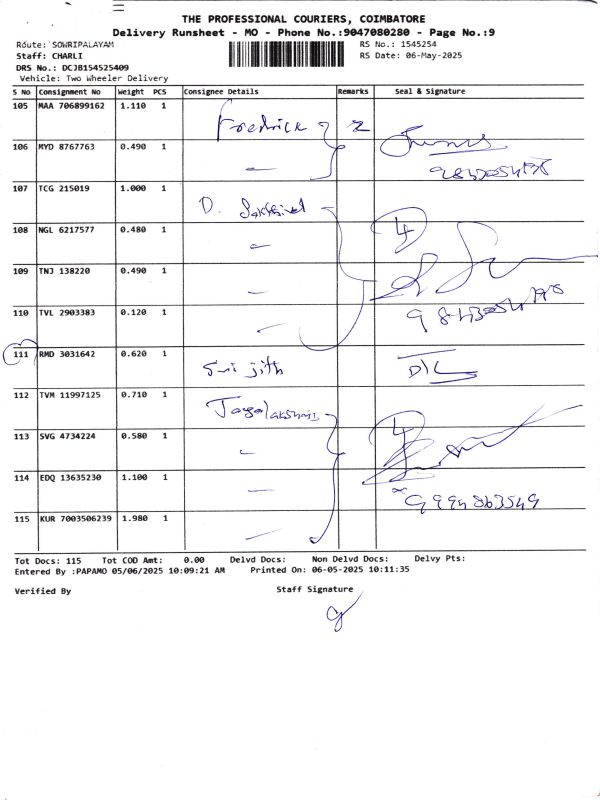 THE PROFESSIONAL COURIERS, COIMBATORE
Delivery Runsheet - MO - Phone No.:9047080280 - Page No.:9
Route: SOWRIPALAYAM
RS No.: 1545254
Staff: CHARLI
RS Date: 06-May-2025
DRS No.: DCJB154525409
Vehicle: Two Wheeler Delivery
S No Consignment No Weight PCS Consignee Details Remarks Seal & Signature
105 MAA 706899162 1.110 1 Fredrick 2
106 MYD 8767763 0.490 1
107 TCG 215019 1.000 1 D.
108 NGL 6217577 0.480 1 4
109 TNJ 138220 0.490 1
110 TVL 2903383 0.120 1
111 RMD 3031642 0.620 1 Sri jith D/L
112 TVM 11997125 0.710 1
113 SVG 4734224 0.580 1 4
114 EDQ 13635230 1.100 1 9994863549
115 KUR 7003506239 1.980 1
Tot Docs: 115 Tot COD Amt: 0.00 Delvd Docs: Non Delvd Docs: Delvy Pts:
Entered By :PAPAMO 05/06/2025 10:09:21 AM Printed On: 06-05-2025 10:11:35
Verified By Staff Signature